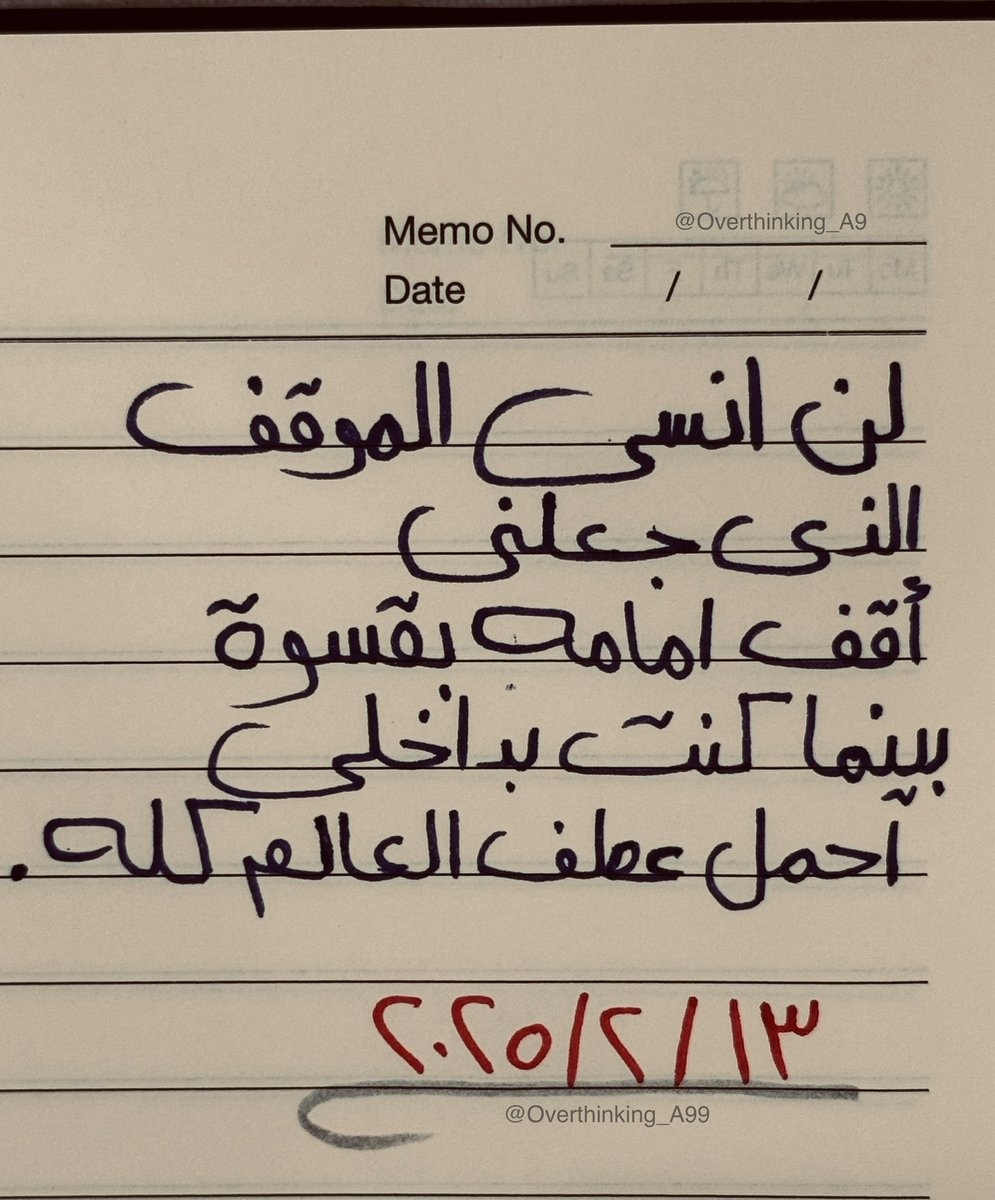 @Overthinking_A9
Memo No.
Date / /
لن انسى الموقف
الذى جعلنى
أقف امامه بقسوة
بينما كنت بداخلى
آحمل عطف العالم كله .
٢٠٢٥/٢/١٣
@Overthinking_A99